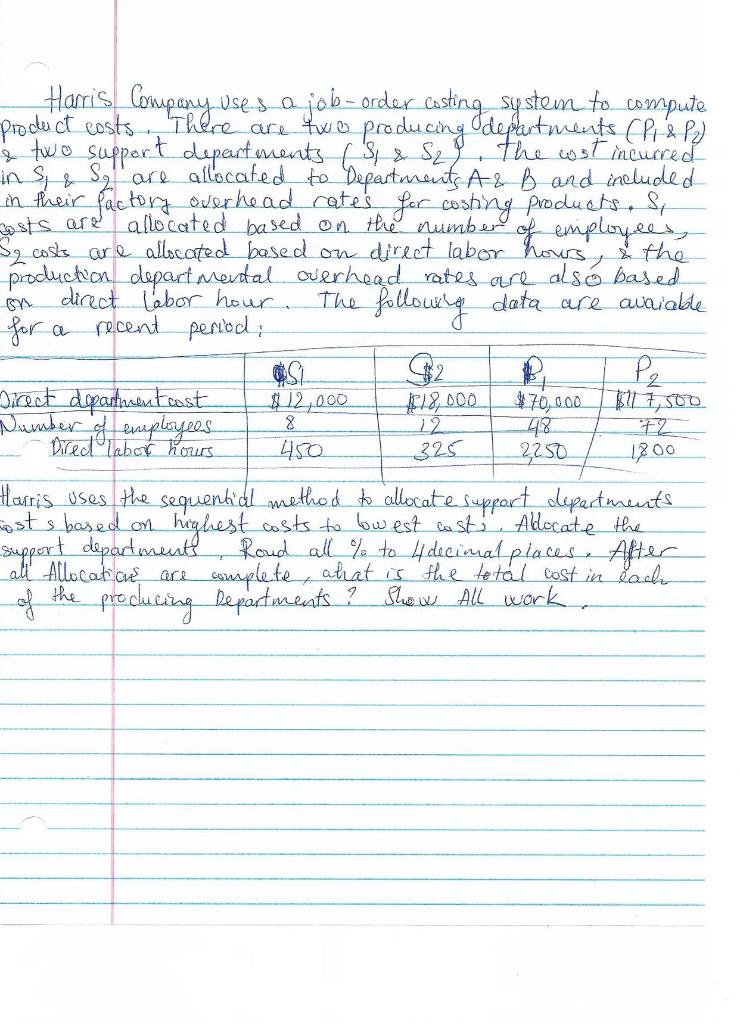 Harris Company uses a job-order costing system to compute
product costs. There are two producing departments (P1 & P2)
& two support departments (S1 & S2). The cost incurred
in S1 & S2 are allocated to Departments A & B and included
in their factory overhead rates for costing products. S1
costs are allocated based on the number of employees,
S2 costs are allocated based on direct labor hours, & the
production departmental overhead rates are also based
on direct labor hour. The following data are avaiable
for a recent period:
S1 S2 P1 P2
Direct department cost $12,000 $18,000 $70,000 $117,500
Number of employees 8 12 48 72
Direct labor hours 450 325 2250 1800
Harris uses the sequential method to allocate support departments
cost s based on highest costs to lowest costs. Allocate the
support departments. Roud all % to 4 decimal places. After
all Allocations are complete, what is the total cost in each
of the producing Departments? Show All work.